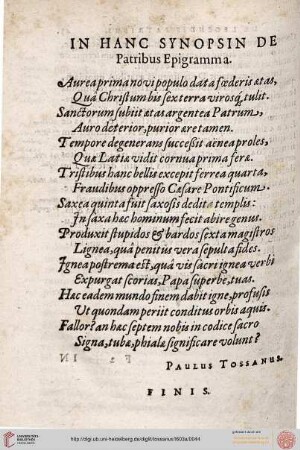 IN HANC SYNOPSIN DE
Patribus Epigramma.
Aurea prima novi populo data fœderis ætas,
Quâ Christum bis sex terra virosq; tulit.
Sanctorum subiit ætas argentea Patrum,
Auro deterior, purior æretamen.
Tempore degenerans successit aënea proles,
Quæ Latia vidit cornua prima feræ.
Tristibus hanc bellis excepit ferrea quarta,
Fraudibus oppresso Cæsare Pontificum.
Saxea quinta fuit saxosis dedita templis:
In saxa hæc hominum fecit abire genus.
Produxit stupidos & bardos sexta magistros
Lignea, quâ penitus vera sepulta fides.
Ignea postrema est, quâ vis sacri ignea verbi
Expurgat scorias, Papa superbe, tuas.
Hæc eadem mundo finem dabit igne, profusis
Ut quondam periit conditus orbis aquis.
Fallor? an hæc septem nobis in codice sacro
Signa, tubæ, phialæ significare volunt?
PAULUS TOSSANUS.
FINIS.
http://digi.ub.uni-heidelberg.de/diglit/tossanus1603a/0044